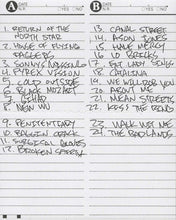 A
DATE
YES NO
1. RETURN OF THE
NORTH STAR
2. HOUSE OF FLYING
DAGGERS
3. SONNY'S MISSING
4. PYREX VISION
5. COLD OUTSIDE
6. BLACK MOZART
7. GIHAD
8. NEW WU
9. PENITENTIARY
10. BAGGIN CRACK
11. SURGICAL GLOVES
12. BROKEN SAFETY
B
DATE
YES NO
13. CANAL STREET
14. ASON JONES
15. HAVE MERCY
16. 10 BRICKS
17. FAT LADY SINGS
18. CATALINA
19. WE WILL ROB YOU
20. ABOUT ME
21. MEAN STREETS
22. KISS THE RING
23. WALK WIT ME
24. THE BADLANDS